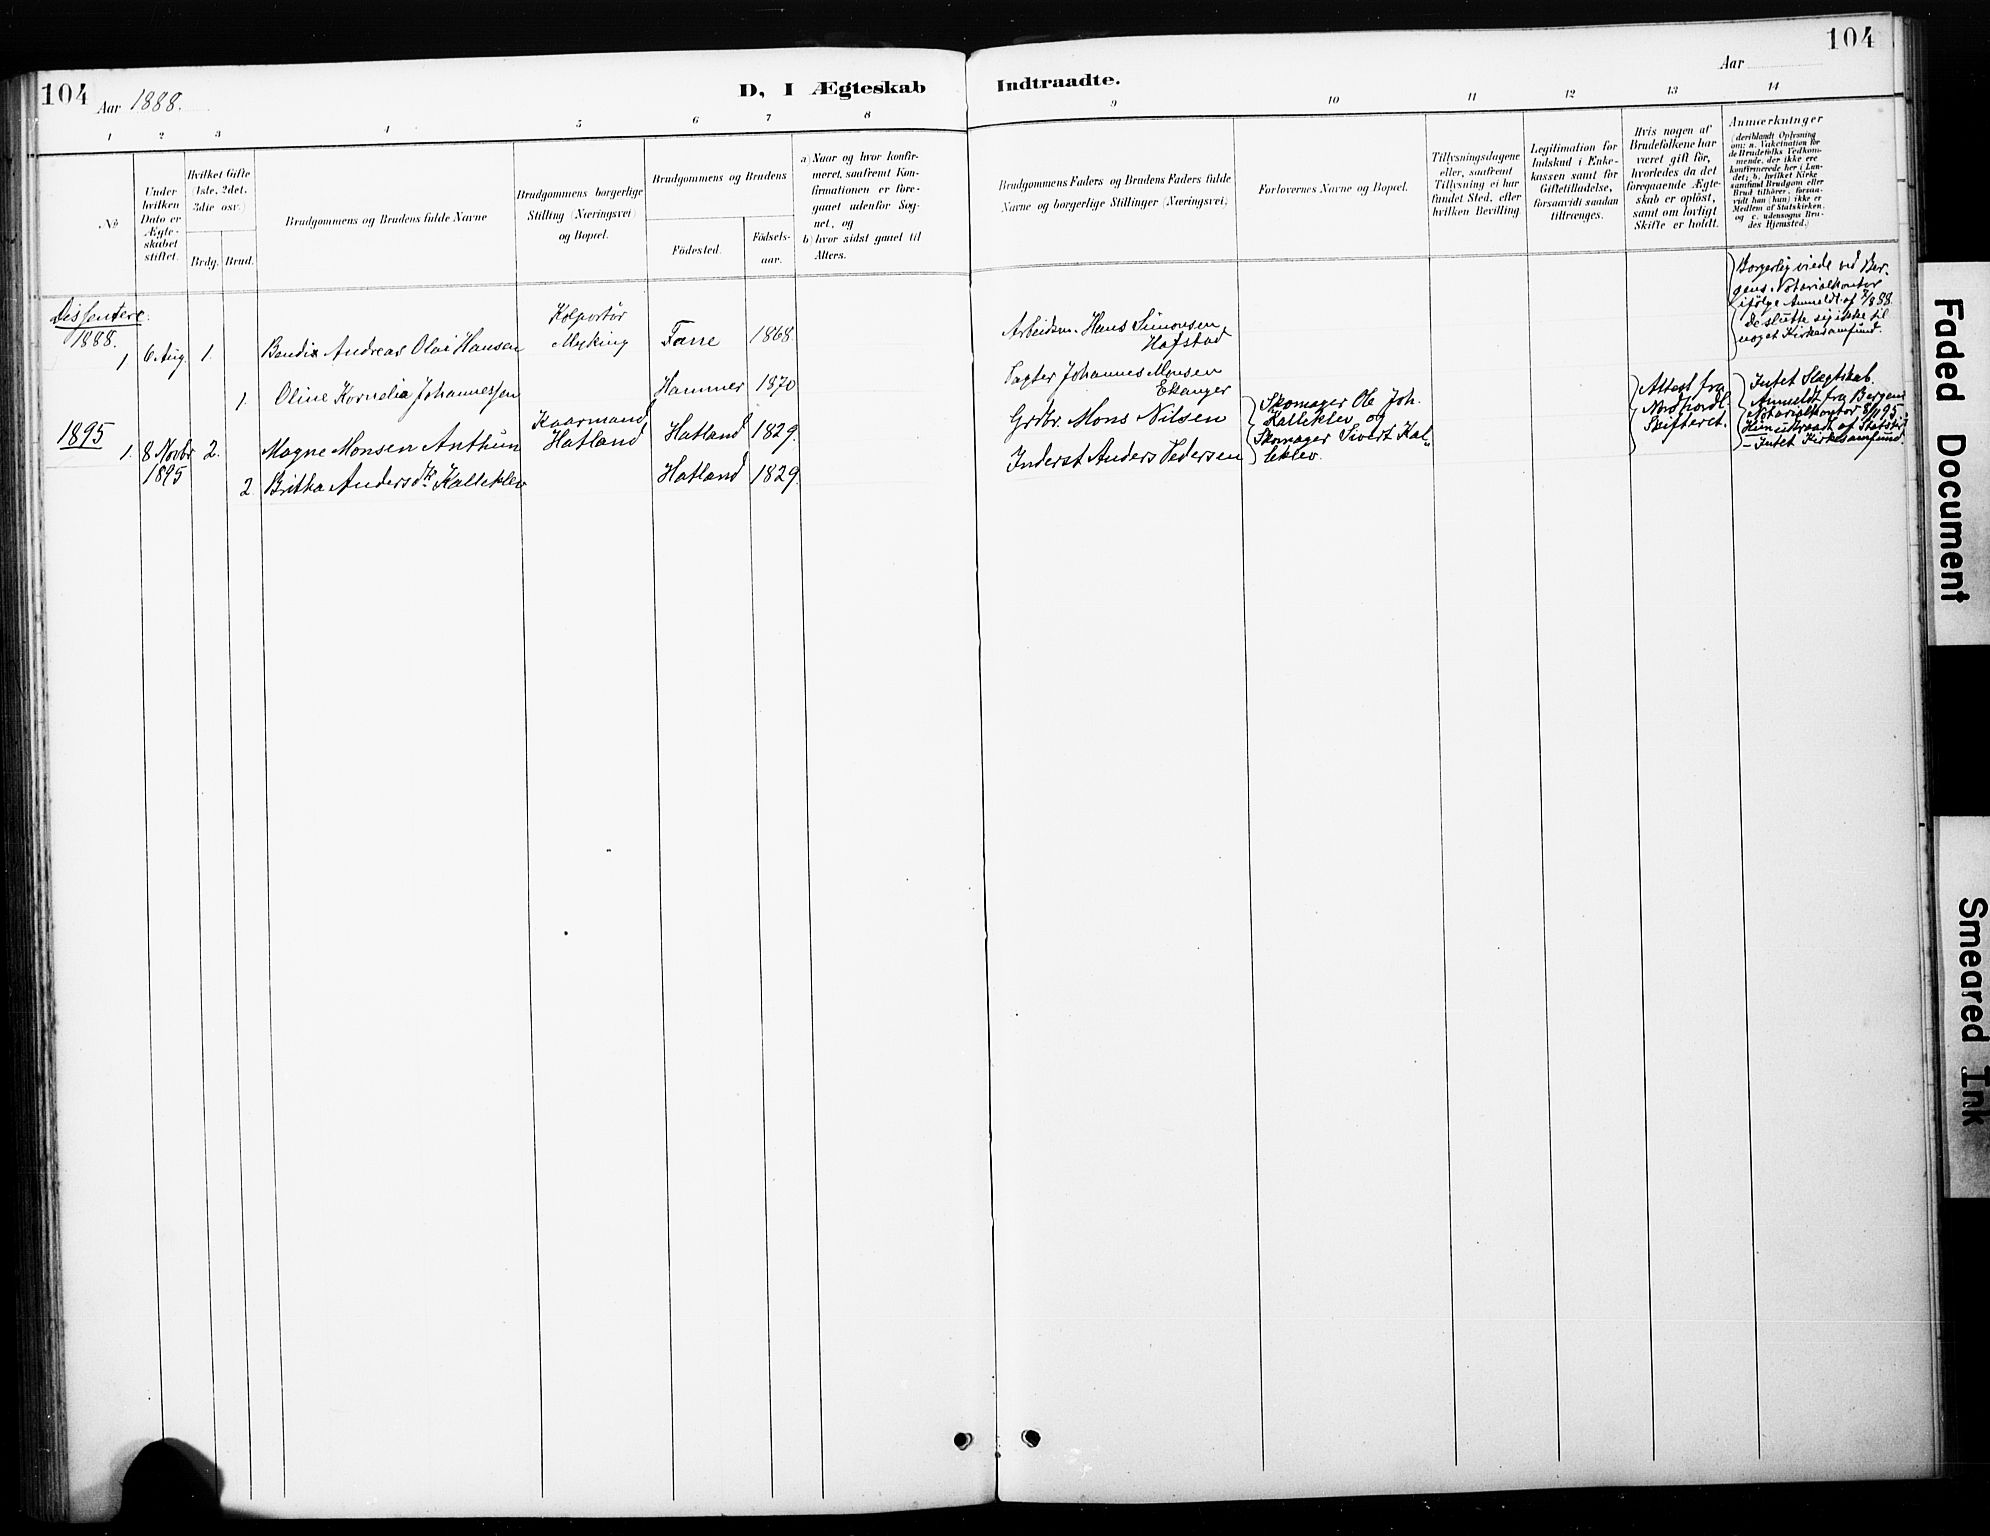 104
Aar 1888.
D, I Ægteskab Indtraadte.
Aar
104
1 2 3 4 5 6 7 8 9 10 11 12 13 14
No
Under hvilken Dato er Ægte-
skabet stiftet.
Hvilket Gifte
(1ste, 2det,
3die osv.)
Brdg. Brud.
Brudgommens og Brudens fulde Navne
Brudgommens borgerlige
Stilling (Næringsvei)
og Bopæl.
Brudgommens og Brudens
Födested.
Födsels-
aar.
a) Naar og hvor konfir-
meret, saafremt Kon-
firmationen er fore-
gaaet udenfor Sog-
net, og
b) hvor sidst gaaet til
Alters.
Brudgommens Faders og Brudens Faders fulde
Navne og borgerlige Stillinger (Næringsvei)
Forlovernes Navne og Bopæl.
Tillysningsdagene
eller, saafremt
Tillysning ei har
fundet Sted, efter
hvilken Bevilling.
Legitimation for
Indskud i Enke-
kassen samt for
Giftetilladelse,
forsaavidt saadan
tiltrænges.
Hvis nogen af
Brudefolkene har
været gift för,
hvorledes da det
foregaaende Ægte-
skab er oplöst,
samt om lovligt
Skifte er holdt.
Anmærkninger
(deriblandt Oplysning
om: a. Vakcination for
de Brudefolks Vedkom-
mende, der ikke ere
konfirmerede her i Lan-
det; b. hvilket Kirke-
samfund Brudgom eller
Brud tilhörer, forsaa-
vidt han (hun) ikke er
Medlem af Statskirken,
og c. udensogns Bru-
des Hjemsted.)
Dissentere:
1888.
1 6 Aug. 1. Bendix Andreas Olai Hansen
Kolportør
Myking
Fane 1868.
Arbeidsm. Hans Simonsen
Hafstad
Borgerlig viede ved Ber-
gens Notarialkontor
ifölge Anmeldt af 7/8 88.
De slutte sig ikke til
noget Kirkesamfund.
1. Oline Kornelia Johannessen
Hammer 1870
Johannes Monsen
Ekanger
1895
1. 8 Novbr 1895 2. Magne Monsen Anthun
Kaarmand
Hatland
Hatland 1829.
Grdbr. Mons Nilsen
Skomager Ole Joh.
Kalleklev og
Skomager Sivert Kal-
leklev.
Attest fra
Nordhordl.
Skifteret.
Intet Slægtskab.
Anmeldt fra Bergens
Notarialkontor 8/11 95.
Hun udtraadt af Statsk.
- Intet Kirkesamfund.
2. Britha Andersdtr. Kalleklev
Hatland 1829.
Inderst Anders Pedersen
Faded Document
Smeared Ink